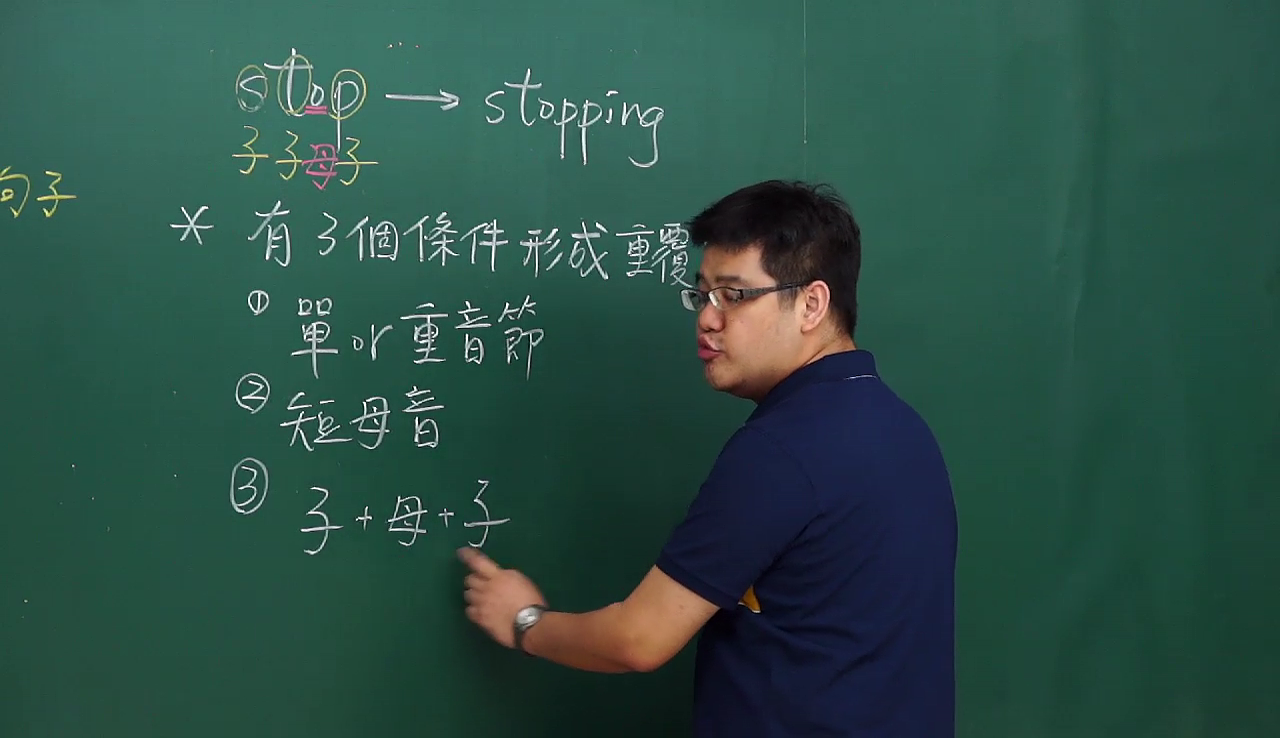 stop → stopping
子子母子
句子
* 有3個條件形成重覆
① 單or重音節
② 短母音
③ 子+母+子